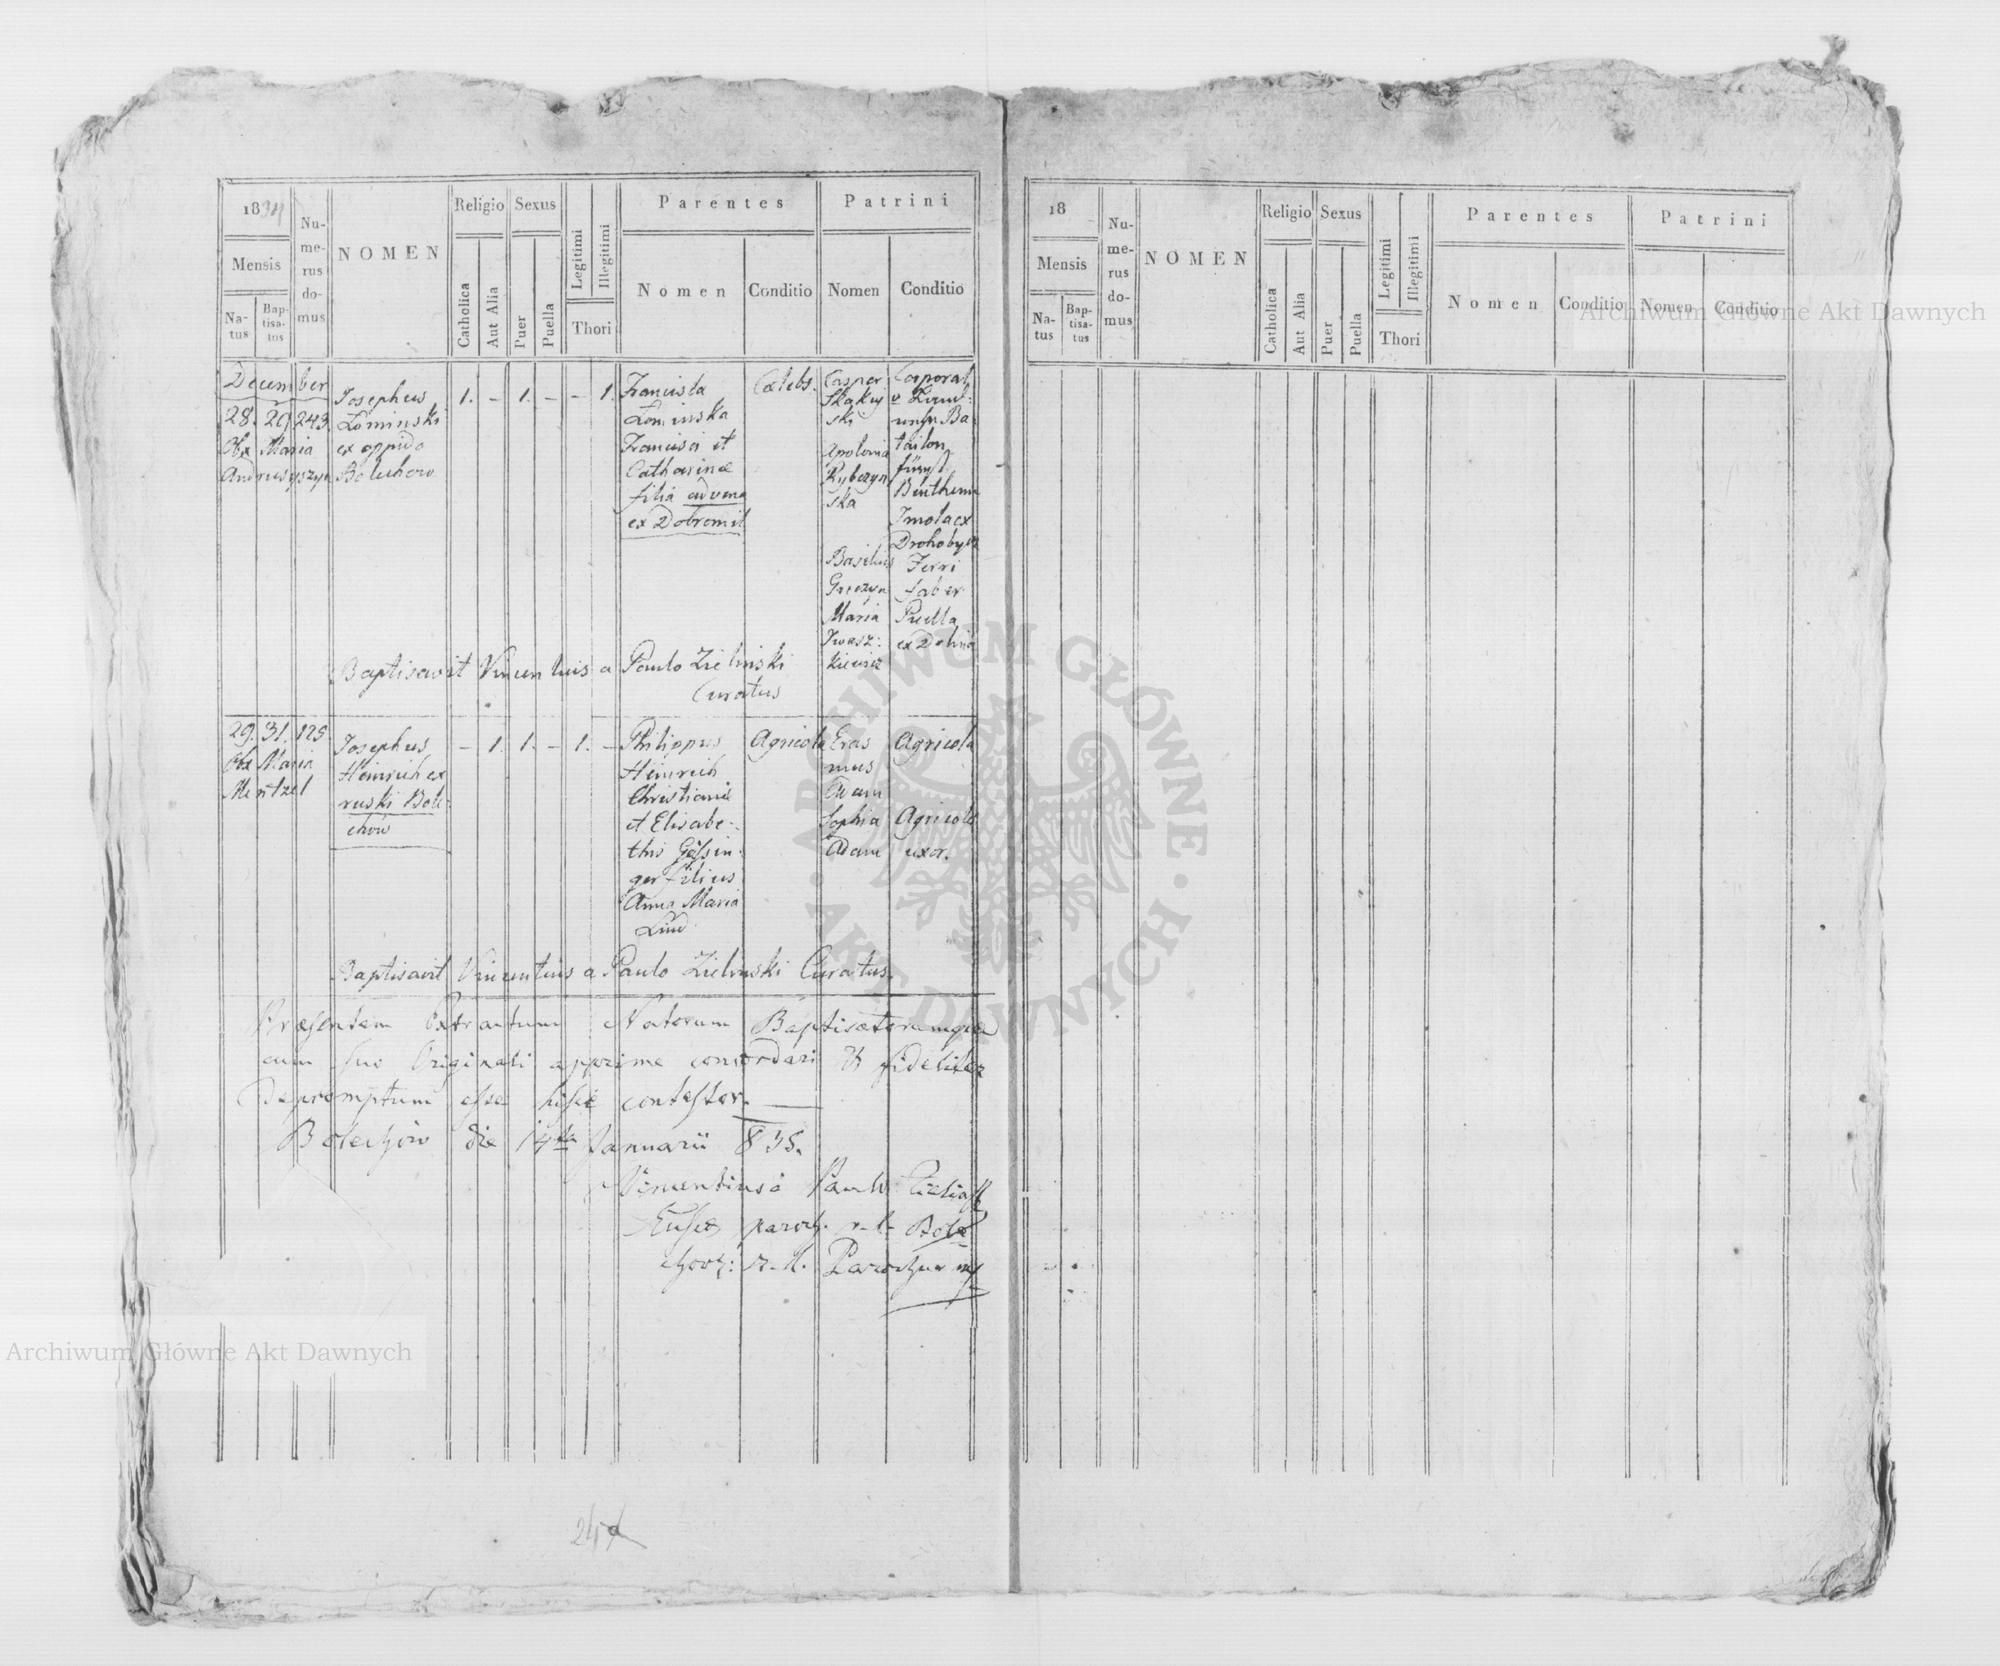 1834
Mensis
Na-
tus
Bap-
tisa-
tus
Nu-
me-
rus
do-
mus
NOMEN
Religio
Catholica
Aut Alia
Sexus
Puer
Puella
Legitimi
Illegitimi
Thori
Parentes
Nomen
Conditio
Patrini
Nomen
Conditio
December
28. 29 243
Obx Maria
Andrusyszyn
Josephus
Łominski
ex oppido
Bolechow
1. - 1. - - 1.
Francisca
Łominska
Francisci et
Catharinæ
filia advena
ex Dobromil
Cælebs.
Casper
Skakuj
ski
Apolonia
Rybczyn
ska
Basilius
Greczyn
Maria
Iwasz:
kiewicz
Corporal
v Land:
wehr Ba
tailon
fürst
Bentheim
Imola ex
Drohobycz
Ferri
faber
Puella
ex Dolina
Baptisavit Vincentius a Paulo Zielinski
Curatus
29. 31. 125
Obx Maria
Mentzel
Josephus
Heinrich ex
ruski Bole-
chow
- 1. 1. - 1. -
Philippus
Heinrich
Christiani
et Elisabe-
this
ger filius
Anna Maria
Lind
Agricola
Eras
mus
Adam
Sophia
Adam
Agricola
Agricolæ
uxor.
Baptisavit Vincentius a Paulo Zielinski Curatus.
Præsentem Extractum Natorum Baptisatorumque
cum suo Originali apprime concordari et fideliter
depromptum esse hisce contestor.
Bolechów die 14ta Januarii 835.
Vincentius à Paulo
paroch. r. l. Bole
choch: r. l. Parochiæ mp
247
18
Mensis
Na-
tus
Bap-
tisa-
tus
Nu-
me-
rus
do-
mus
NOMEN
Religio
Catholica
Aut Alia
Sexus
Puer
Puella
Legitimi
Illegitimi
Thori
Parentes
Nomen
Conditio
Patrini
Nomen
Conditio
Archiwum Główne Akt Dawnych
Archiwum Główne Akt Dawnych
ARCHIWUM GŁÓWNE AKT DAWNYCH